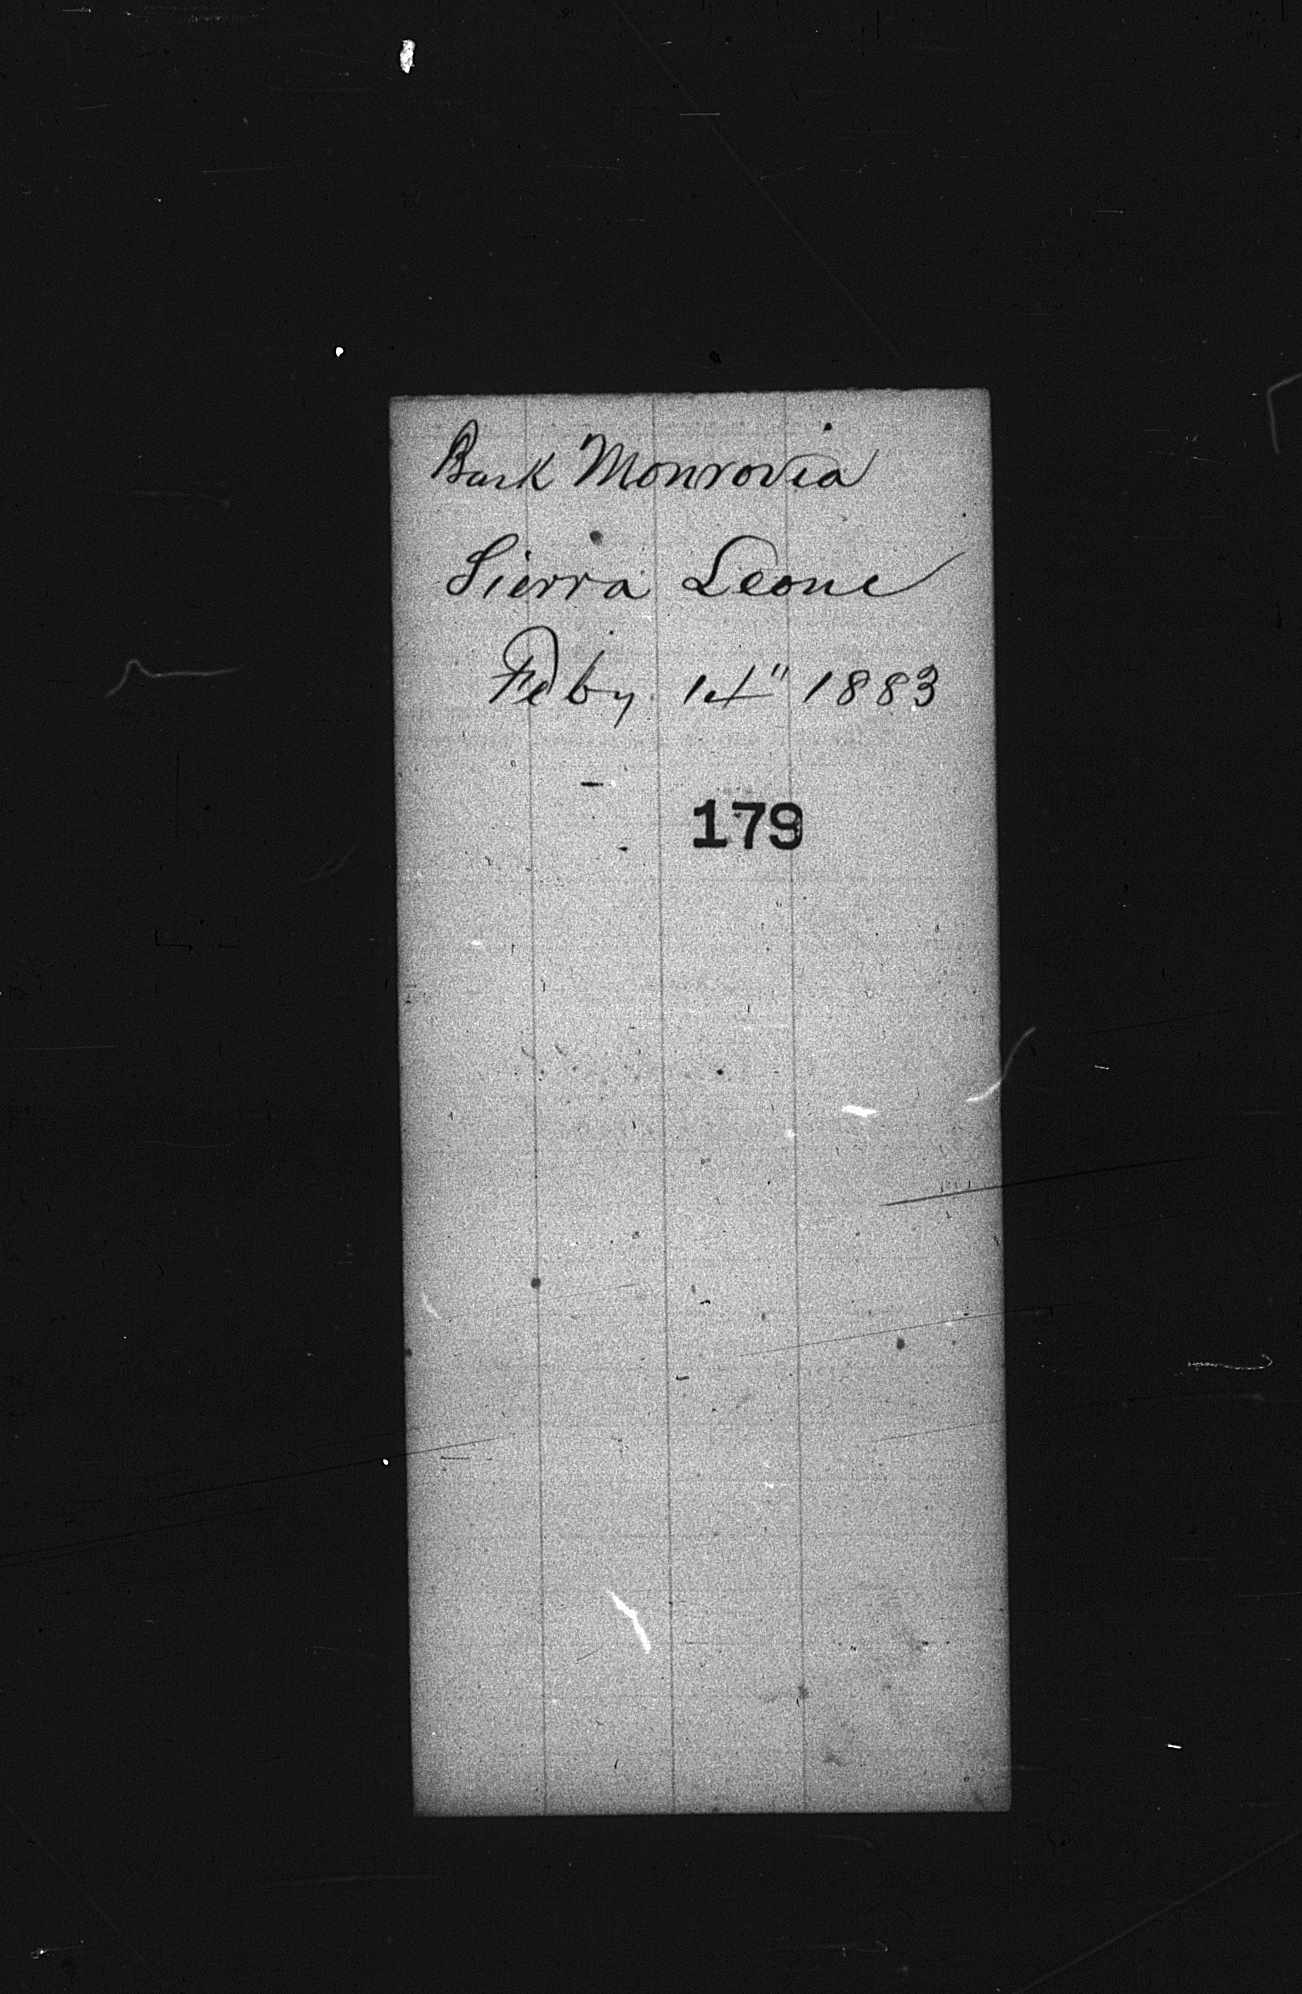 Bark Monrovia
Sierra Leone
Feby 14" 1883
179